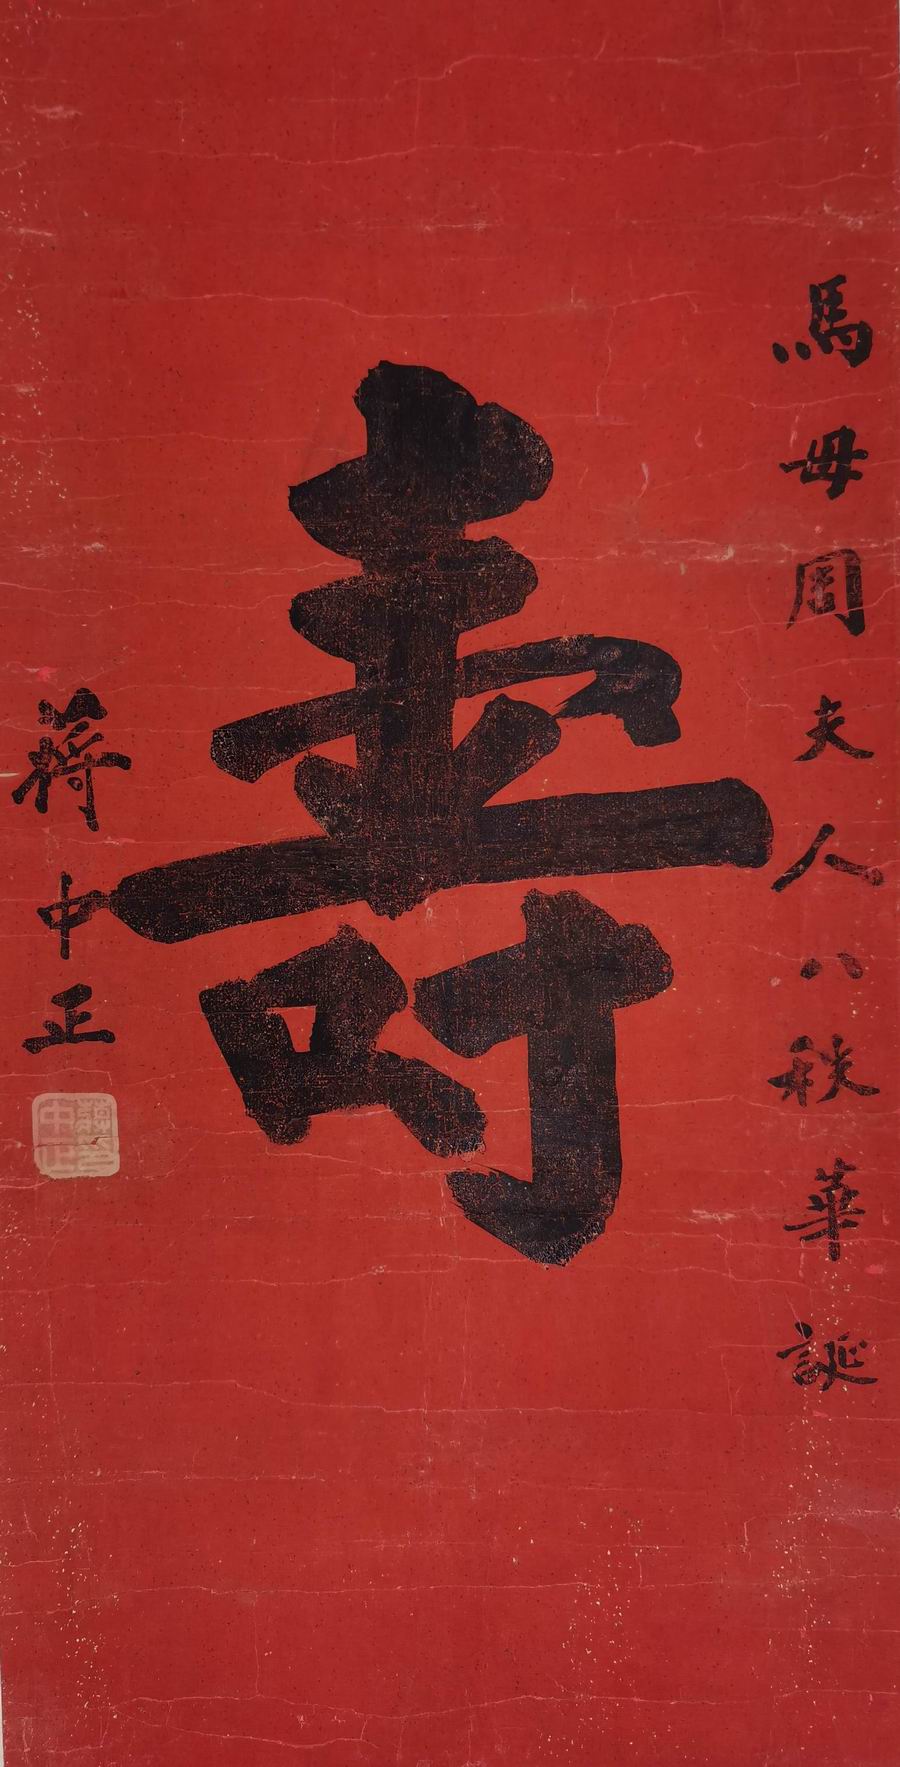 馬母周夫人八秩華誕
壽
蔣中正
蔣中正印